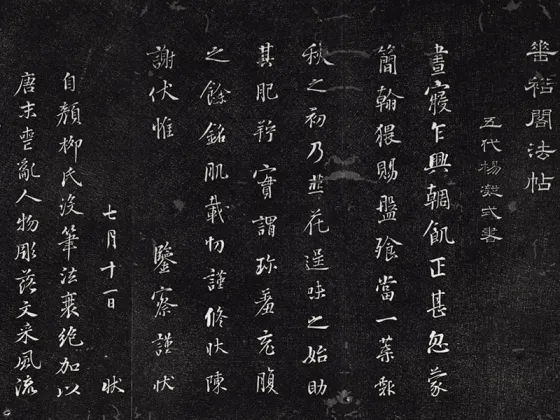 垂裕閣法帖
五代楊凝式書
晝寢乍興輖飢正甚忽蒙
簡翰猥賜盤飧當一葉報
秋之初乃韭花逞味之始助
其肥羜實謂珍羞充腹
之餘銘肌載切謹修狀陳
謝伏惟 鑒察謹狀
七月十一日 狀
自顏柳氏沒筆法衰絕加以
唐末喪亂人物彫落文采風流